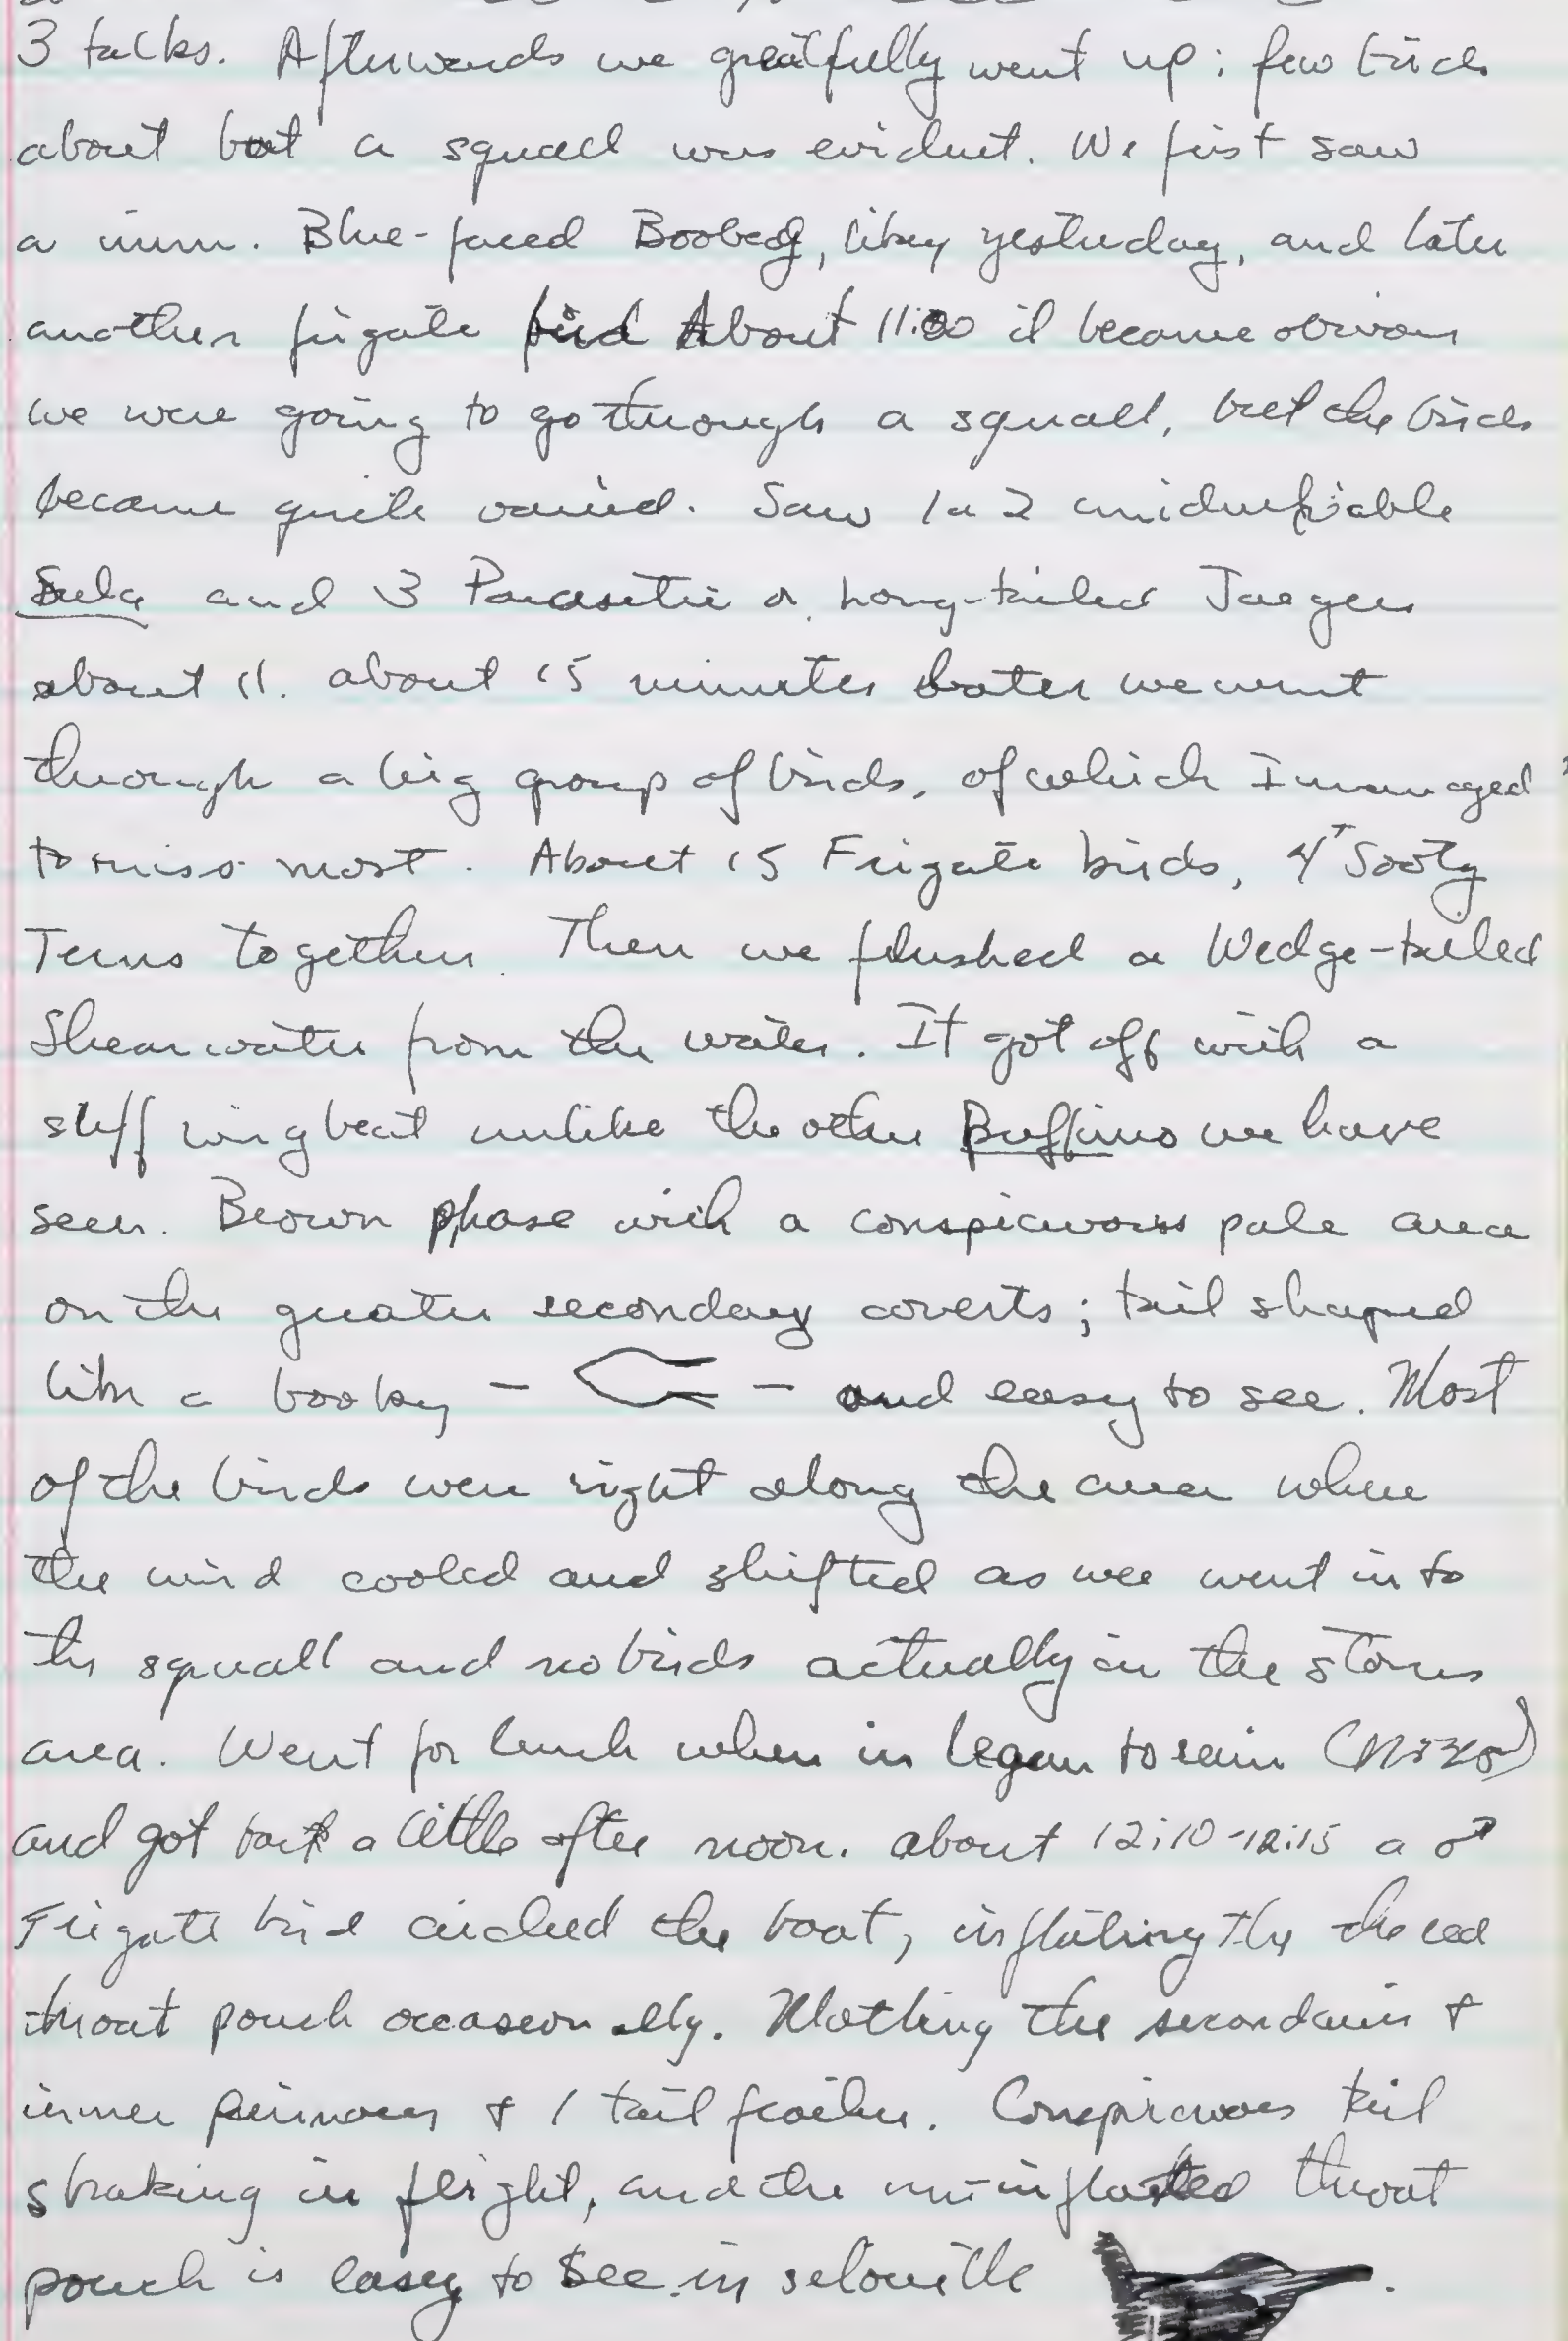 3 talks. Afterwards we greatfully went up; few birds
about but a squall was evident. We first saw
a imm. Blue-faced Booby, likey yesterday, and later
another frigate bird About 11:00 it became obvious
we were going to go through a squall, but the birds
became quite varied. Saw 1 or 2 unidentifiable
Sula and 3 Parasitic or Long-tailed Jaegers
about 11. about 15 minutes later we went
through a big group of birds, of which I managed
to miss most. About 15 Frigate birds, 4 Sooty
Terns together. Then we flushed a Wedge-tailed
Shearwater from the water. It got off with a
stiff wingbeat unlike the other Puffinus we have
seen. Brown phase with a conspicuous pale area
on the greater secondary coverts; tail shaped
like a booby - - and easy to see. Most
of the birds were right along the area where
the wind cooled and shifted as wee went into
the squall and no birds actually in the storm
area. Went for lunch when in began to rain
and got back a little after noon. about 12:10-12:15 a ♂
Frigate bird circled the boat, inflating the the red
throat pouch occaseonally. Molting the secondaries +
inner primaries + 1 tail feather. Conspicuous tail
shaking in flight, and the un-inflated throat
pouch is easy to see in selouitte .